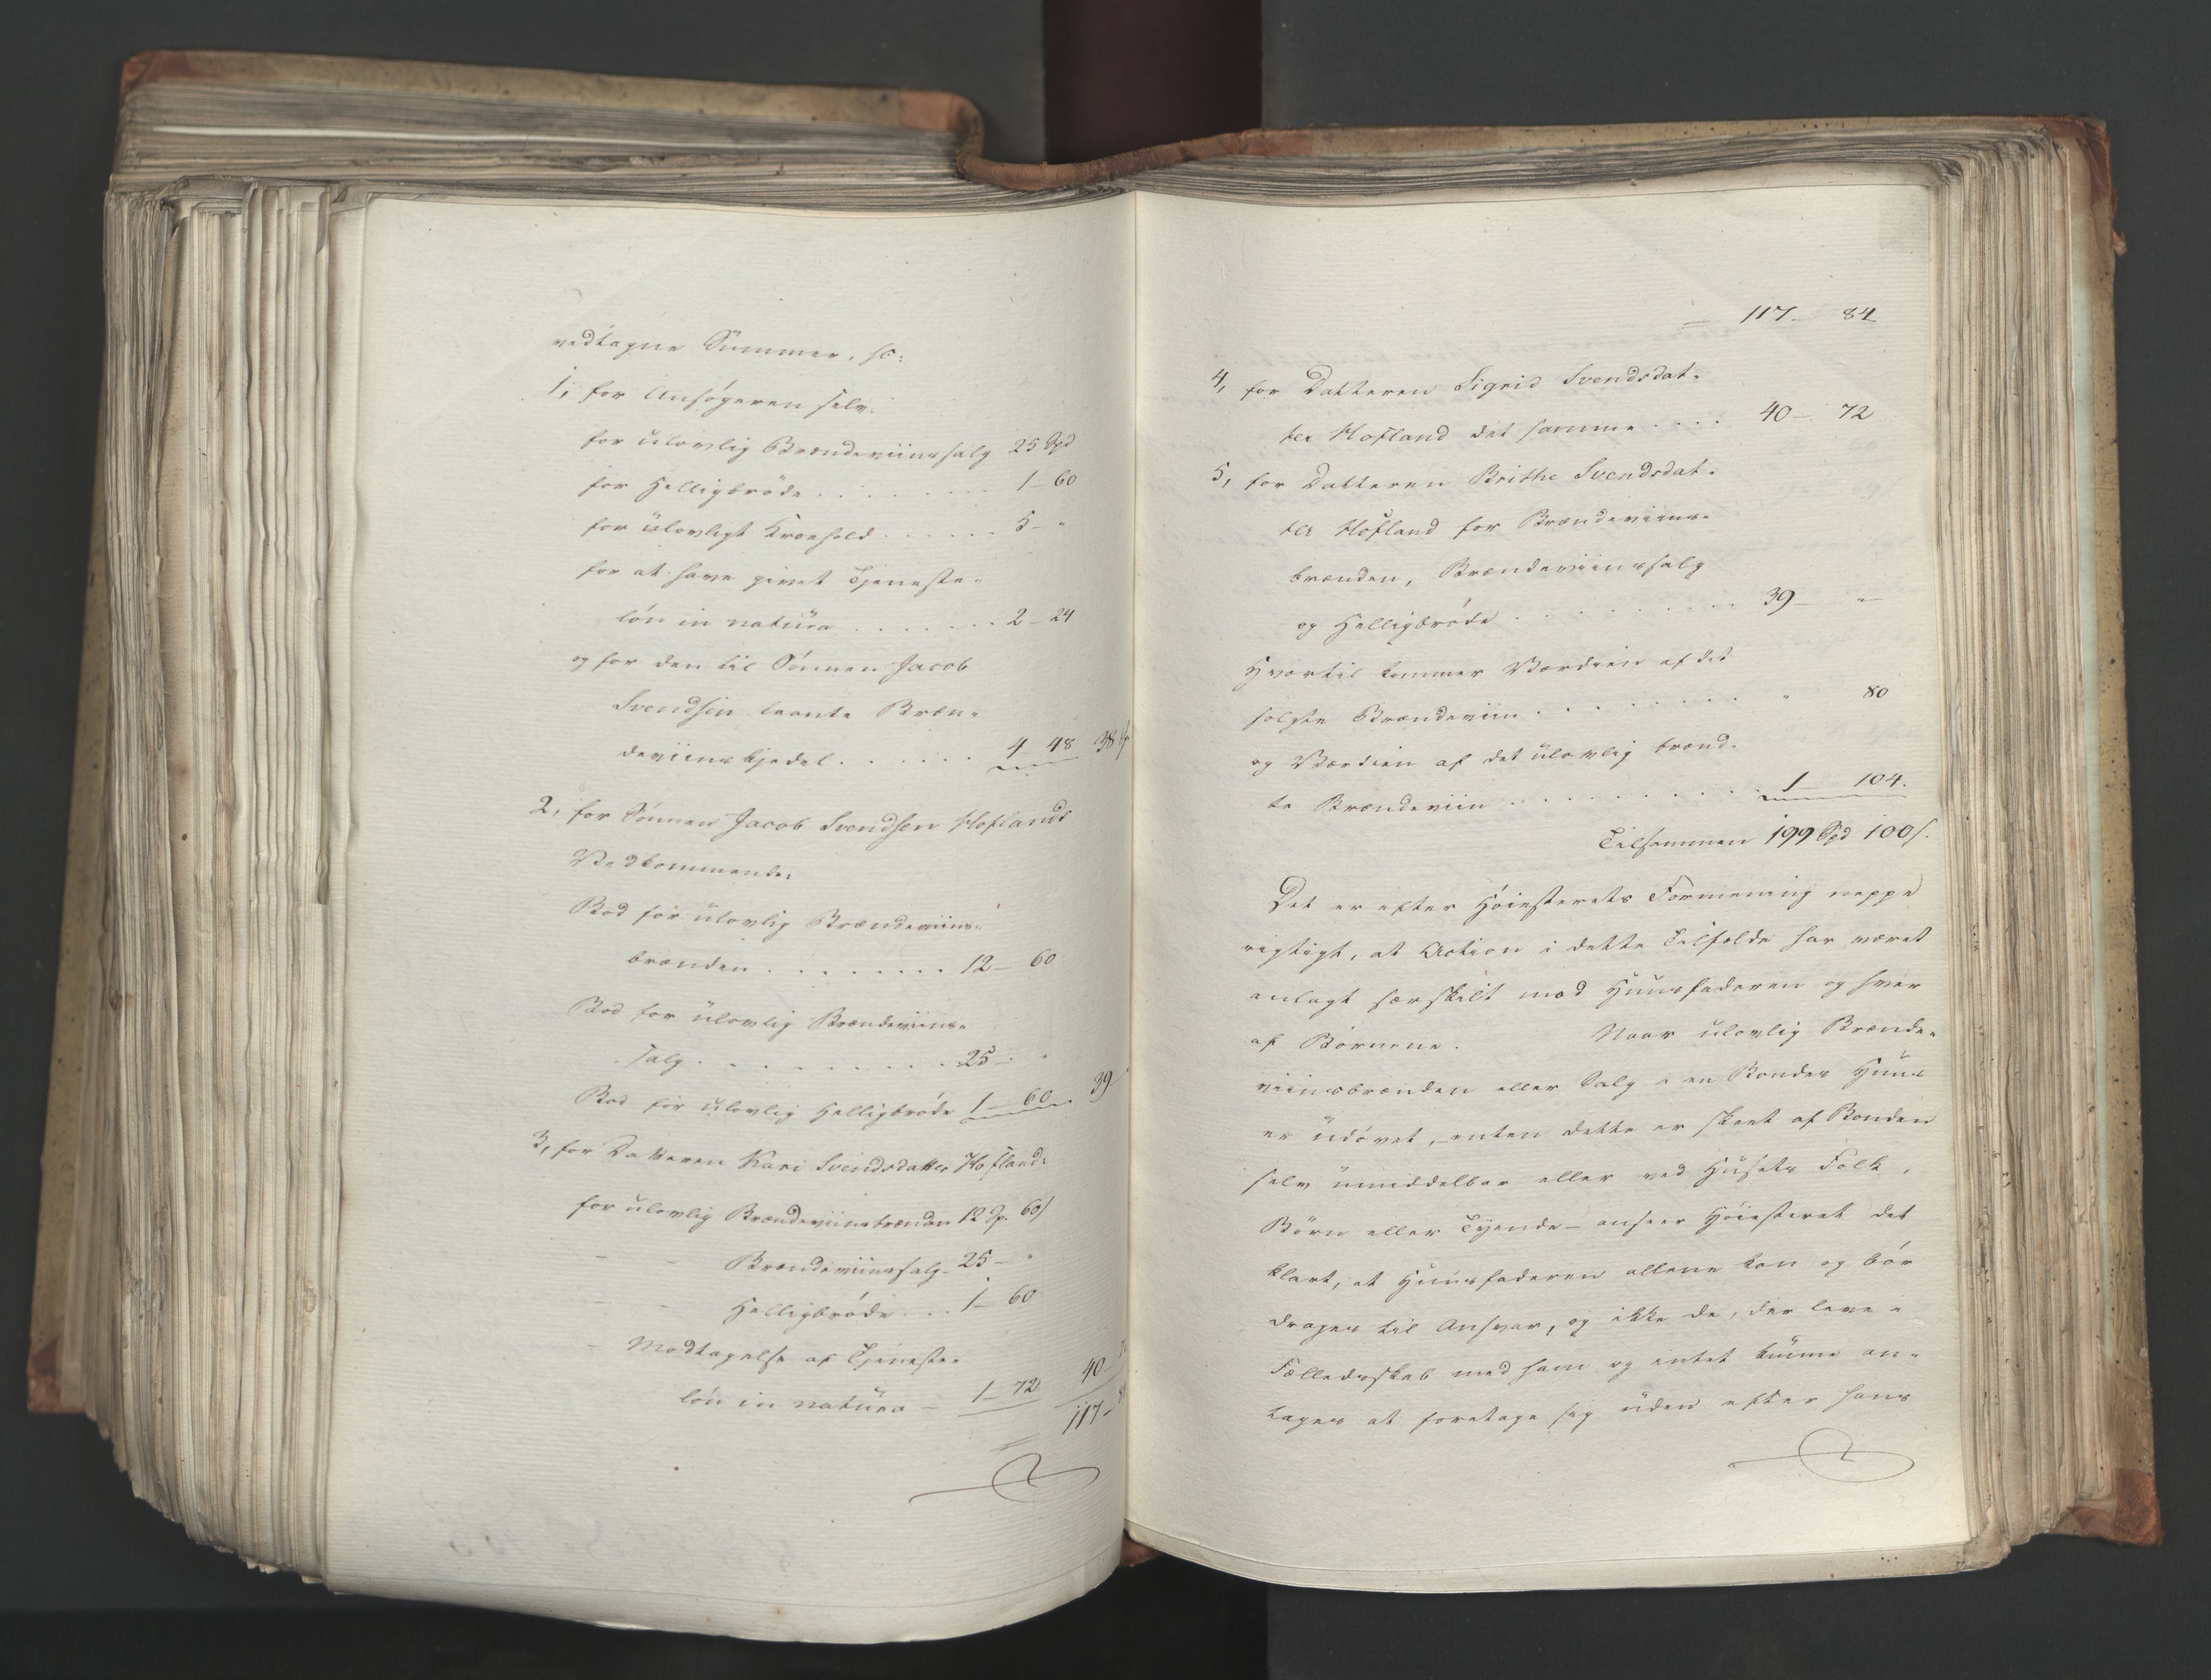 vedtagne Summer, sc:
1, for Ansøgeren selv.
for ulovlig Brændeviinssalg 25 Spd
for Helligbrøde . . . . . . . . 1 – 60
for ulovligt Kroehold . . . . . . 5 – "
for at have givet Tjeneste-
løn in natura . . . . . . . 2 – 24
og for den til Sønnen Jacob
Svendsen laante Bræn-
deviinskjedel . . . . . . 4 48 38
2, for Sønnen Jacob Svendsen Hoflands
Vedkommende.
Bod for ulovlig Brændeviins-
brænden . . . . . . . . 12 – 60
Bod for ulovlig Brændeviins-
salg . . . . . . . . . . 25 – "
Bod for ulovlig Helligbrøde 1 – 60 39
3, for Datteren Kari Svendsdatter Hofland:
for ulovlig Brændeviinsbrænden 12 Sp. 60 s
– – Brændeviinssalg – 25 – "
– – Helligbrøde . . . 1 – 60
– Modtagelse af Tjeneste-
løn in natura – 1 – 72 40 –
117 –
– 117 – 84
4, for Datteren Sigrid Svendsdat-
ter Hofland det samme . . . . 40 – 72
5, for Datteren Brithe Svendsdat-
ter Hofland for Brændeviins-
brænden, Brændeviinssalg
og Helligbrøde . . . . . . . . . 39 – "
Hvortil kommer Værdien af det
solgte Brændeviin . . . . . . . . " 80
og Værdien af det ulovlig brænd-
te Brændeviin . . . . . . . . . . 1 – 104.
Tilsammen 199 Spd 100 s.
Det er efter Høiesterets Formening neppe
rigtigt, at Action i dette Tilfælde har været
anlagt særskilt mod Huusfaderen og hver
af Børnene. Naar ulovlig Brænde-
viinsbrænden eller Salg i en Bondes Huus
er udøvet, – enten dette er skeet af Bonden
selv umiddelbar eller ved Husets Folk,
Børn eller Tyende – anseer Høiesteret det
klart, at Huusfaderen allene kan og bør
drages til Ansvar, og ikke de, der leve i
Fælledsskab med ham og intet kunne an-
tages at foretage sig uden efter hans